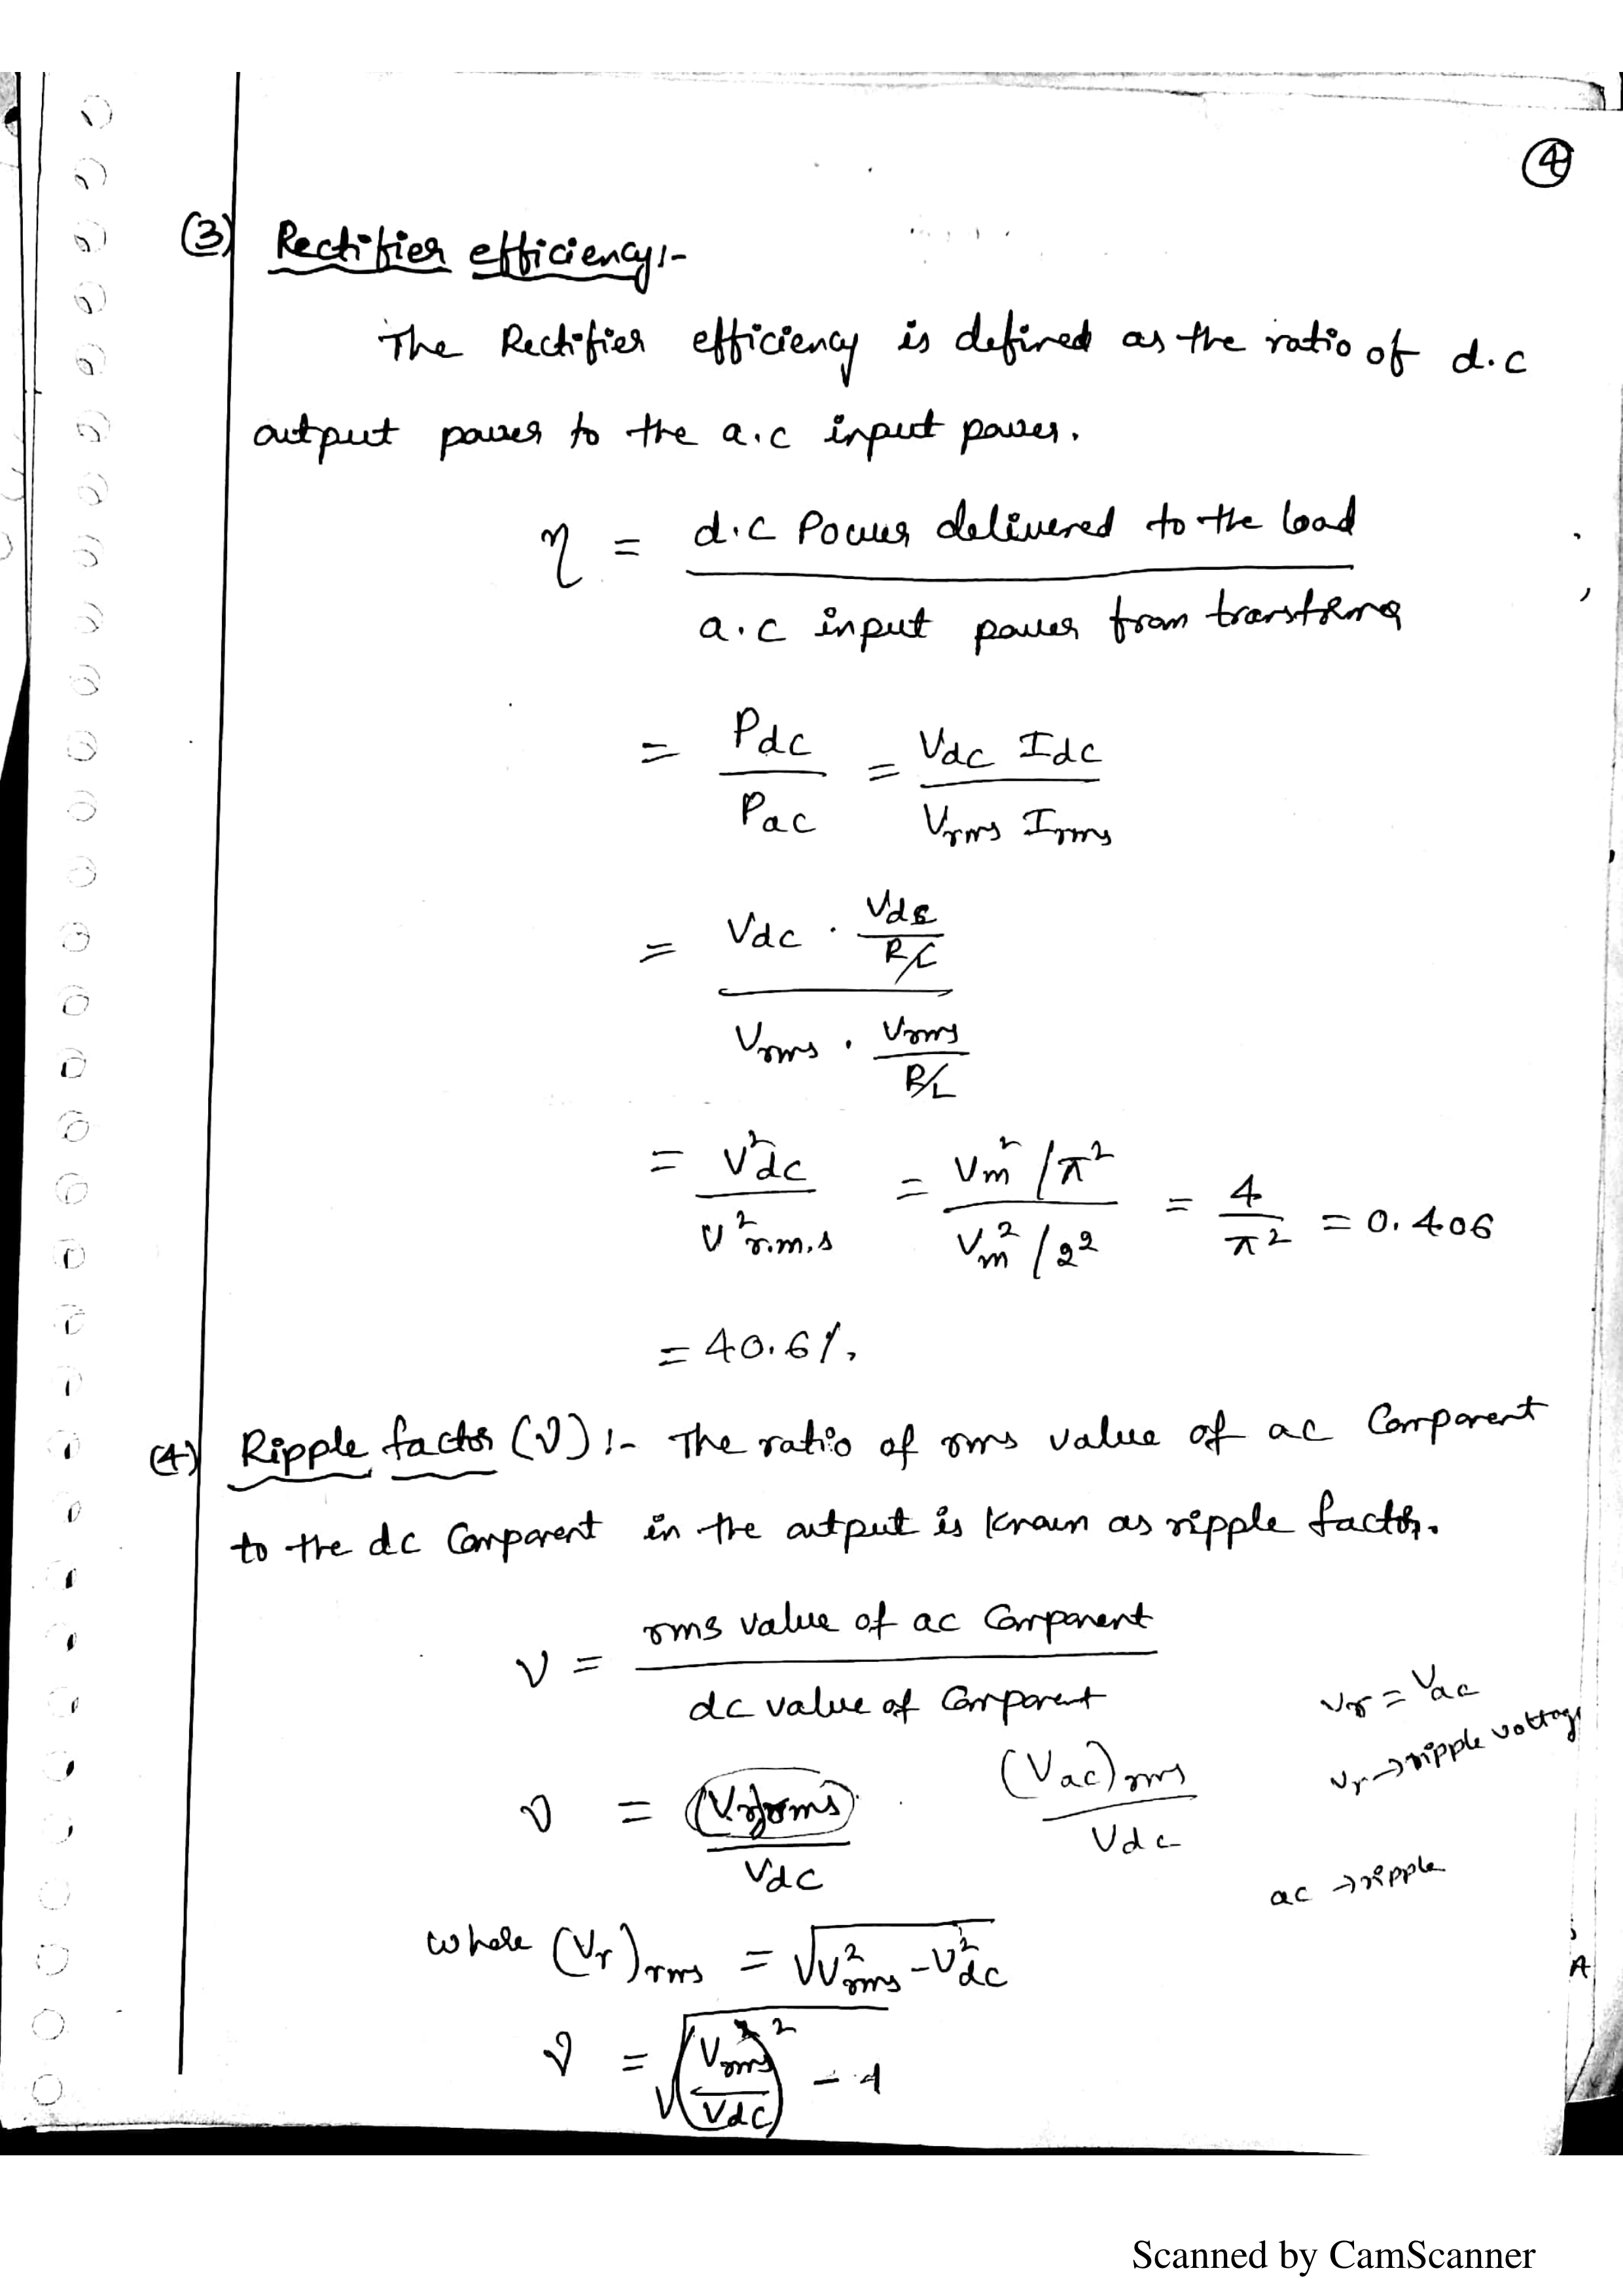 ④
(3) Rectifier efficiency:-
The Rectifier efficiency is defined as the ratio of d.c
output power to the a.c input power.
η = d.c Power delivered to the load
a.c input power from transformer
= Pdc / Pac = Vdc Idc / Vrms Irms
= Vdc . Vdc/RL
Vrms . Vrms/RL
= V²dc / V²r.m.s = Vm²/π² / Vm²/2² = 4/π² = 0.406
= 40.6%.
(4) Ripple factor (γ) :- The ratio of rms value of ac Component
to the dc Component in the output is known as ripple factor.
γ = rms value of ac Component
dc value of Component
Vr = Vac
Vr → ripple voltage
γ = (Vr)rms / Vdc
(Vac)rms / Vdc
ac → ripple
where (Vr)rms = √V²rms - V²dc
γ = √(Vrms/Vdc)² - 1
Scanned by CamScanner